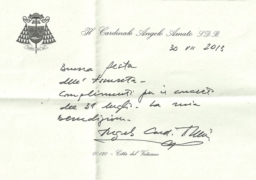 Il Cardinale Angelo Amato S.D.B.
30 VII 2013
Buona festa
dell'Assunta
Complimenti per i
del 29 luglio. La mia
benedizione.
Angelo Card. Amato
00120 - Città del Vaticano